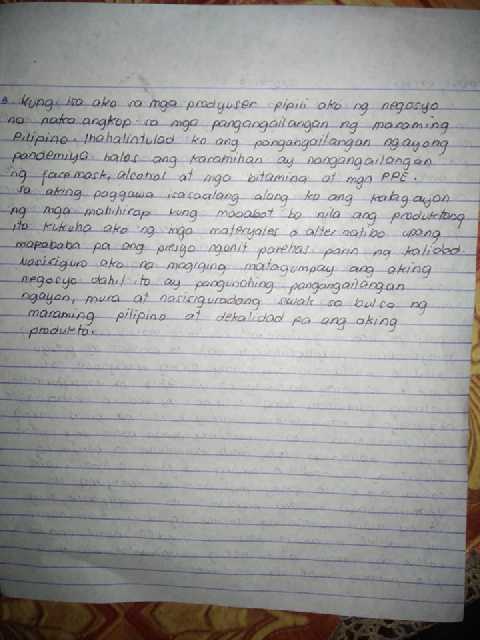 Kung isa ako sa mga prodyuser pipili ako ng negosyo
na naka angkop sa mga pangangailangan ng maraming
Pilipino. Ihahalintulad ko ang pangangailangan ngayong
pandemiya halos ang karamihan ay nangangailangan
ng facemask, alcohol at mga bitamina at mga PPE.
Sa aking paggawa isasaalang alang ko ang kakayayan
ng mga mahihirap kung maaabot ba nila ang produktong
ito kukuha ako ng mga materyales o alternatibo upang
mapababa pa ang presyo ngunit parehas parin ng kalidad.
Nasisiguro ako na magiging matagumpay ang aking
negosyo dahil ito ay pangunahing pangangailangan
ngayon, mura at nasisiguradong swak sa bulsa ng
maraming pilipino at dekalidad pa ang aking
produkto.